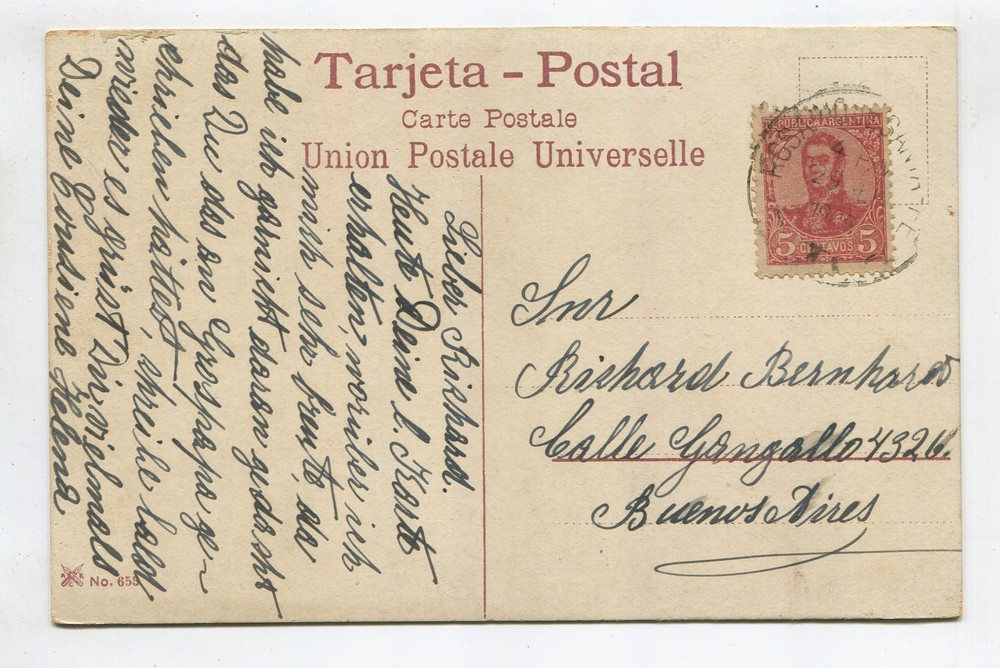 Tarjeta - Postal
Carte Postale
Union Postale Universelle
REPUBLICA ARGENTINA
5 CENTAVOS 5
ROSARIO SANTA FE
Snr
Richard Bernhard
Calle Gangallo 4326.
Buenos Aires
Lieber Richard.
Heute Dein l. Karte
erhalten, worüber ich
mich sehr freute, da
habe ich garnicht daran gedacht
das Du das an Grosspapa ge-
chrieben hattest, shreibe bald
wieder es grüst Dich vielmals
Deine Cousiene Helena
No. 655